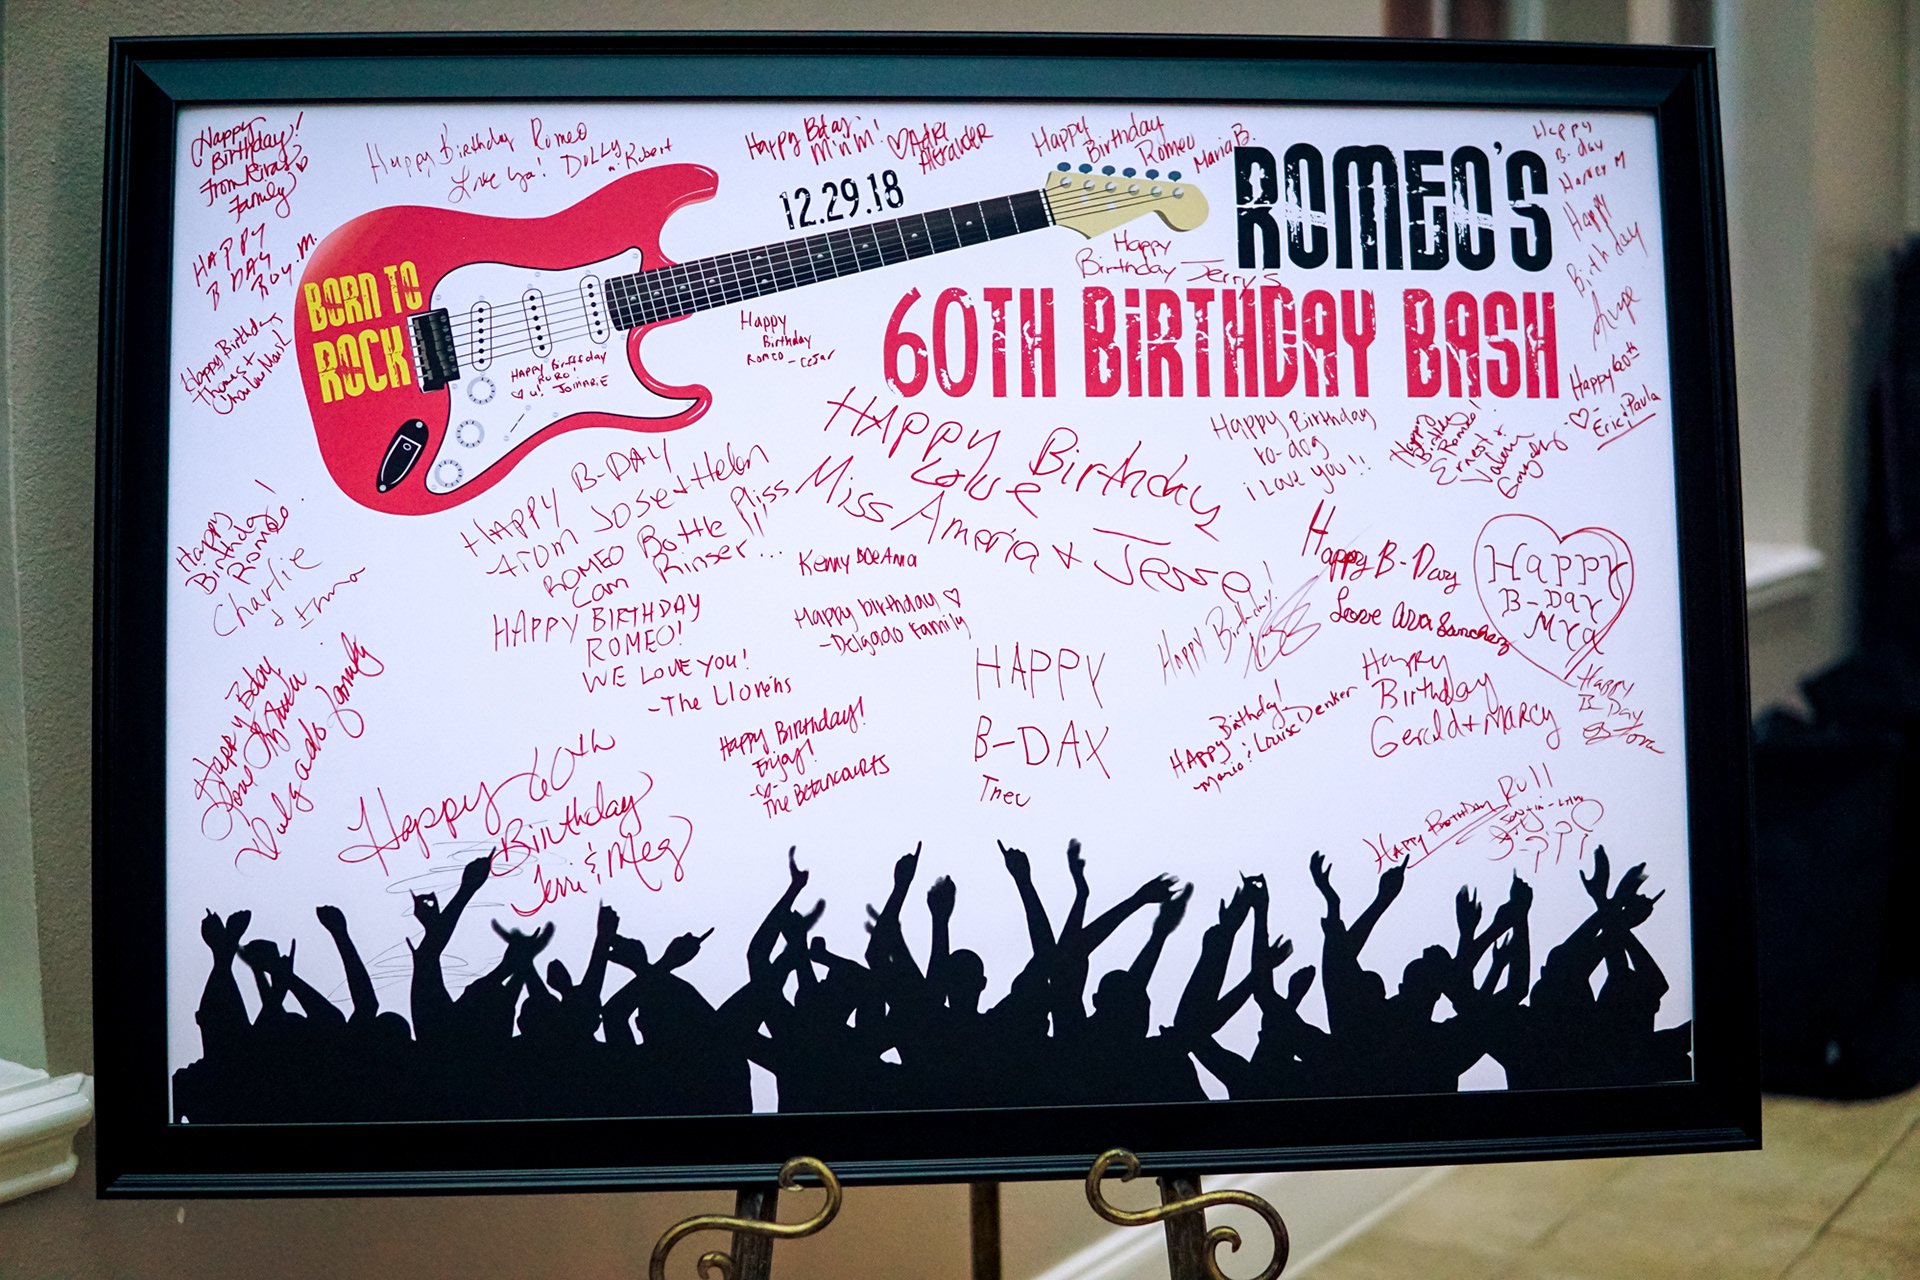 Happy
Birthday!
From Rivas
Family
Happy Birthday Romeo
Love ya! Dolly & Robert
Happy Bday
M'n'm!
Alexander
Happy
Birthday
Romeo
Maria B.
12.29.18
ROMEO'S
60TH BIRTHDAY BASH
BORN TO
ROCK
Happy
B-day
Harvey M
Happy
Birthday
HAPPY
B DAY
Roy. M.
Happy Birthday
Thomas +
Happy
Birthday Jerry S
Happy
Birthday
Romeo
- Cesar
Happy Birthday
RORO!
♡ u! JoMARIE
Happy 60th
♡ -
Eric & Paula
Happy Birthday
ro-dog
i love you!!
Happy
Birthday
Romeo!
Ernest +
Valerie
HAPPY Birthday
Love
Miss America + Jesse
HAPPY B-DAY
from Jose + Helen
ROMEO Bottle Pliss
Can Rinser...
Happy
Birthday
Romeo!
Charlie
& Irma
Kenny DeeAnna
Happy birthday ♡
- Delgado Family
HAPPY BIRTHDAY
ROMEO!
WE LOVE YOU!
- The Llorens
Happy B-Day
Love Ava Sanchez
Happy
B-DAY
Mya
Happy Birthday!
HAPPY
B-DAY
Trev
Happy Birthday!
Enjoy!
-♡-
The Betancourts
Happy Birthday!
Mario & Louise Denker
Happy
Birthday
Gerald + Marcy
Happy
B-Day
Happy Bday
Love
Delgado Family
Happy 60th
Birthday
Terri & Meg
Happy Birthday Roll